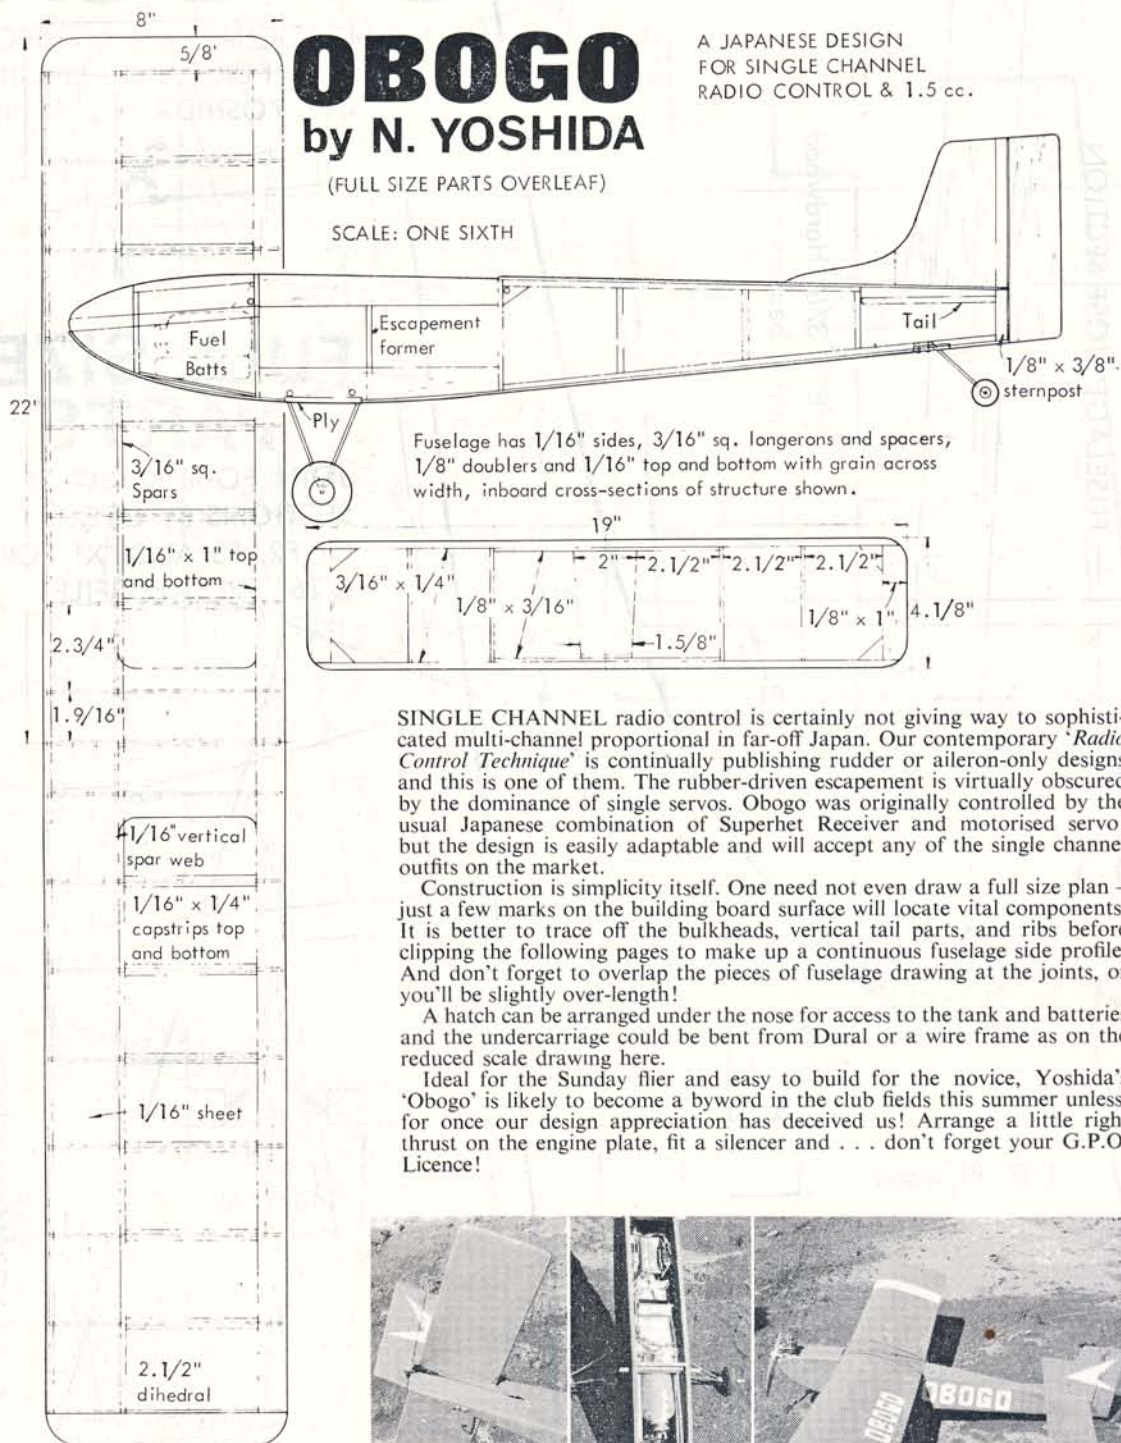 8"
5/8'
OBOGO
by N. YOSHIDA
(FULL SIZE PARTS OVERLEAF)
SCALE: ONE SIXTH
A JAPANESE DESIGN
FOR SINGLE CHANNEL
RADIO CONTROL & 1.5 cc.
Fuel
Batts
Escapement
former
Tail
1/8" x 3/8"
sternpost
22'
Ply
3/16" sq.
Spars
Fuselage has 1/16" sides, 3/16" sq. longerons and spacers,
1/8" doublers and 1/16" top and bottom with grain across
width, inboard cross-sections of structure shown.
19"
1/16" x 1" top
and bottom
3/16" x 1/4"
1/8" x 3/16"
2"
2.1/2"
2.1/2"
2.1/2"
1/8" x 1"
4.1/8"
1.5/8"
2.3/4"
1.9/16"
1/16" vertical
spar web
1/16" x 1/4"
capstrips top
and bottom
1/16" sheet
2.1/2"
dihedral
SINGLE CHANNEL radio control is certainly not giving way to sophisti-
cated multi-channel proportional in far-off Japan. Our contemporary 'Radio
Control Technique' is continually publishing rudder or aileron-only designs
and this is one of them. The rubber-driven escapement is virtually obscured
by the dominance of single servos. Obogo was originally controlled by the
usual Japanese combination of Superhet Receiver and motorised servo
but the design is easily adaptable and will accept any of the single channel
outfits on the market.
Construction is simplicity itself. One need not even draw a full size plan –
just a few marks on the building board surface will locate vital components
It is better to trace off the bulkheads, vertical tail parts, and ribs before
clipping the following pages to make up a continuous fuselage side profile
And don't forget to overlap the pieces of fuselage drawing at the joints, or
you'll be slightly over-length!
A hatch can be arranged under the nose for access to the tank and batterie
and the undercarriage could be bent from Dural or a wire frame as on the
reduced scale drawing here.
Ideal for the Sunday flier and easy to build for the novice, Yoshida's
'Obogo' is likely to become a byword in the club fields this summer unless
for once our design appreciation has deceived us! Arrange a little righ
thrust on the engine plate, fit a silencer and . . . don't forget your G.P.O
Licence!
OBOGO
OBOGO